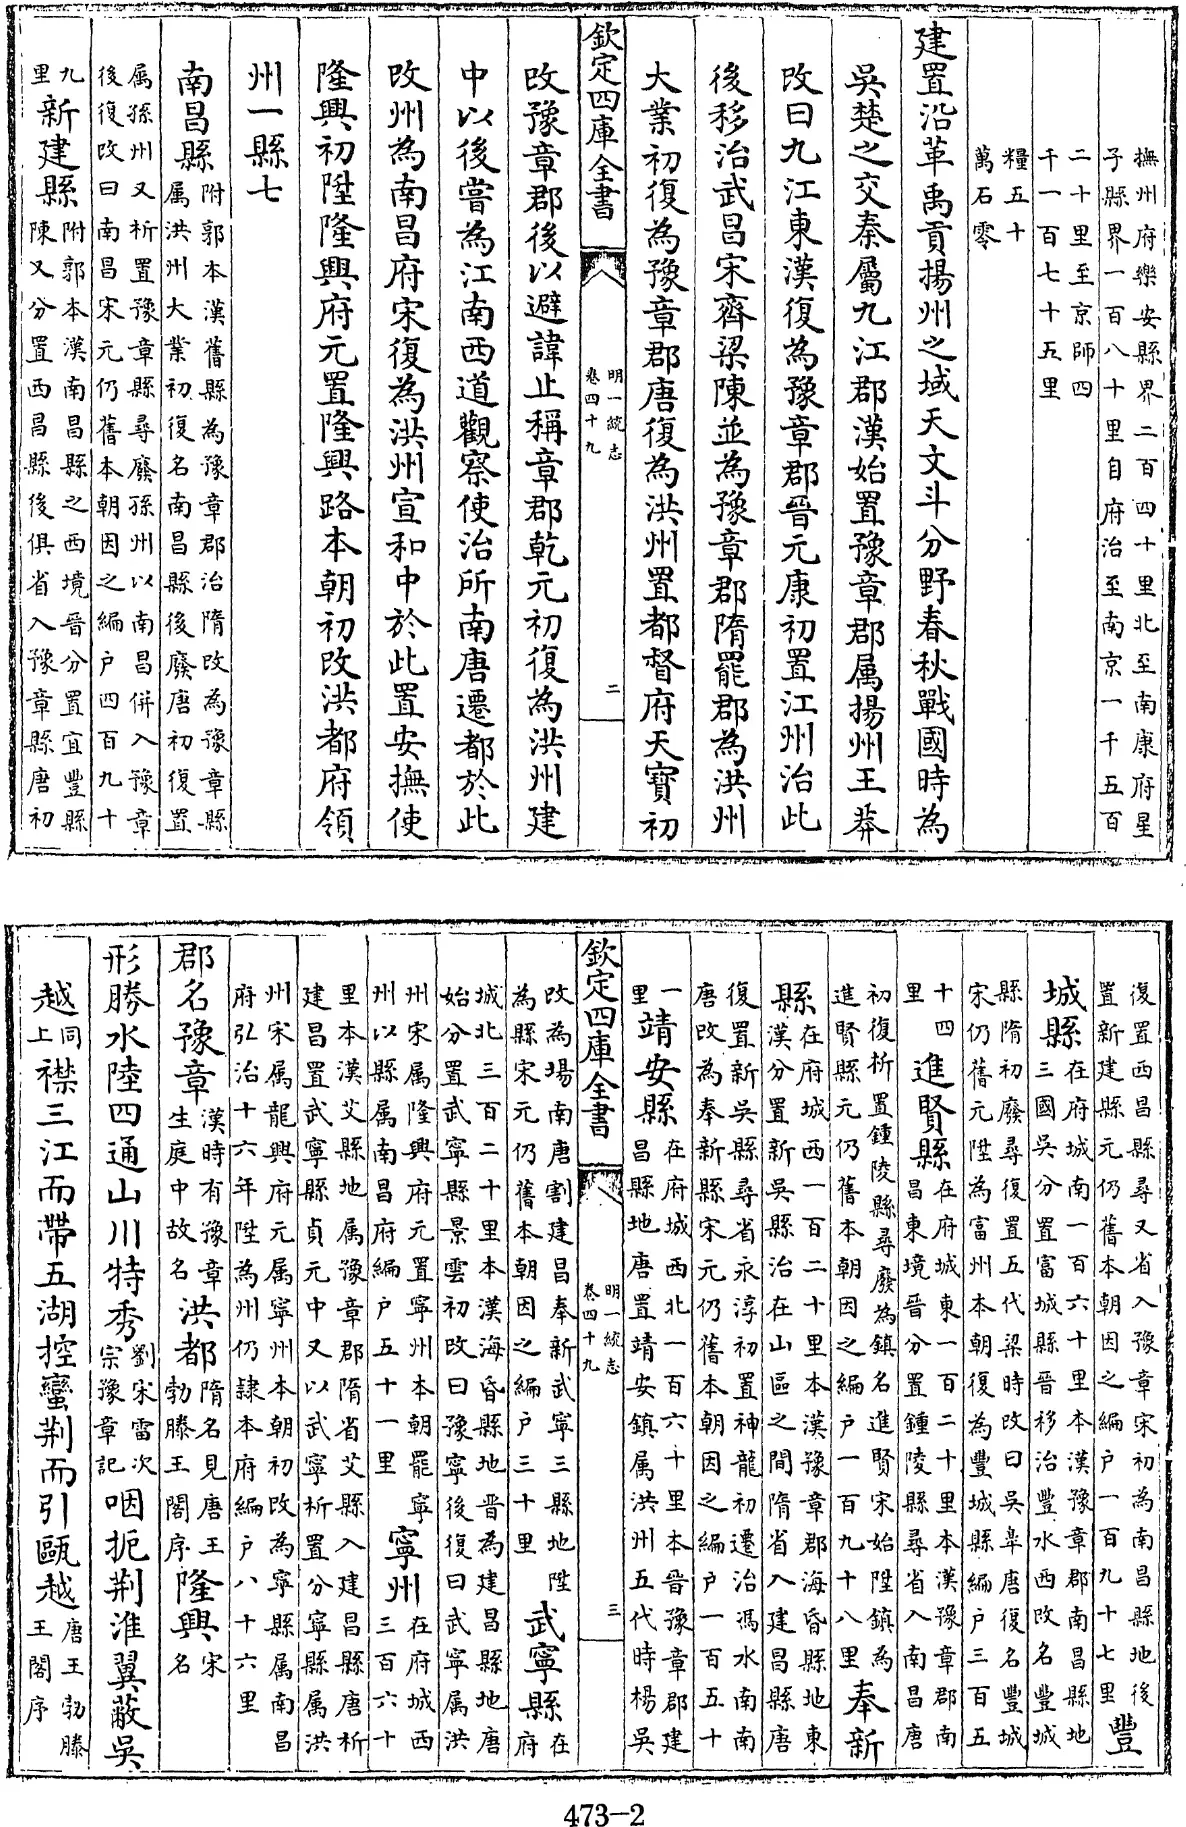 撫州府樂安縣界二百四十里北至南康府星
子縣界一百八十里自府治至南京一千五百
二十里至京師四
千一百七十五里
糧五十
萬石零
建置沿革禹貢揚州之域天文斗分野春秋戰國時為
吳楚之交秦屬九江郡漢始置豫章郡属揚州王莽
改曰九江東漢復為豫章郡晉元康初置江州治此
後移治武昌宋齊梁陳並為豫章郡隋罷郡為洪州
大業初復為豫章郡唐復為洪州置都督府天寶初
欽定四庫全書
明一統志
卷四十九
二
改豫章郡後以避諱止稱章郡乾元初復為洪州建
中以後嘗為江南西道觀察使治所南唐遷都於此
改州為南昌府宋復為洪州宣和中於此置安撫使
隆興初陞隆興府元置隆興路本朝初改洪都府領
州一縣七
南昌縣
附郭本漢舊縣為豫章郡治隋改為豫章縣
属洪州大業初復名南昌縣後廢唐初復置
属孫州又析置豫章縣尋廢孫州以南昌併入豫章
後復改曰南昌宋元仍舊本朝因之編戶四百九十
九
里
新建縣
附郭本漢南昌縣之西境晉分置宜豐縣
陳又分置西昌縣後俱省入豫章縣唐初
復置西昌縣尋又省入豫章宋初為南昌縣地後
置新建縣元仍舊本朝因之編戶一百九十七里
豐
城縣
在府城南一百六十里本漢豫章郡南昌縣地
三國吳分置富城縣晉移治豐水西改名豐城
縣隋初廢尋復置五代梁時改曰吳臯唐復名豐城
宋仍舊元陞為富州本朝復為豐城縣編戶三百五
十四
里
進賢縣
在府城東一百二十里本漢豫章郡南
昌東境晉分置鍾陵縣尋省入南昌唐
初復析置鍾陵縣尋廢為鎮名進賢宋始陞鎮為
進賢縣元仍舊本朝因之編戶一百九十八里
奉新
縣
在府城西一百二十里本漢豫章郡海昏縣地東
漢分置新吳縣治在山區之間隋省入建昌縣唐
復置新吳縣尋省永淳初置神龍初遷治馮水南南
唐改為奉新縣宋元仍舊本朝因之編戶一百五十
一
里
靖安縣
在府城西北一百六十里本晉豫章郡建
昌縣地唐置靖安鎮属洪州五代時楊吳
欽定四庫全書
明一統志
卷四十九
三
改為場南唐割建昌奉新武寧三縣地陞
為縣宋元仍舊本朝因之編戶三十里
武寧縣
在
府
城北三百二十里本漢海昏縣地晉為建昌縣地唐
始分置武寧縣景雲初改曰豫寧後復曰武寧属洪
州宋属隆興府元置寧州本朝罷寧
州以縣属南昌府編戶五十一里
寧州
在府城西
三百六十
里本漢艾縣地属豫章郡隋省艾縣入建昌縣唐析
建昌置武寧縣貞元中又以武寧析置分寧縣属洪
州宋属龍興府元属寧州本朝初改為寧縣属南昌
府弘治十六年陞為州仍隷本府編戶八十六里
郡名豫章
漢時有豫章
生庭中故名
洪都
隋名見唐王
勃滕王閣序
隆興
宋
名
形勝水陸四通山川特秀
劉宋雷次
宗豫章記
咽扼荆淮翼蔽吳
越
同
上
襟三江而帶五湖控蠻荆而引甌越
唐王勃滕
王閣序
473-2